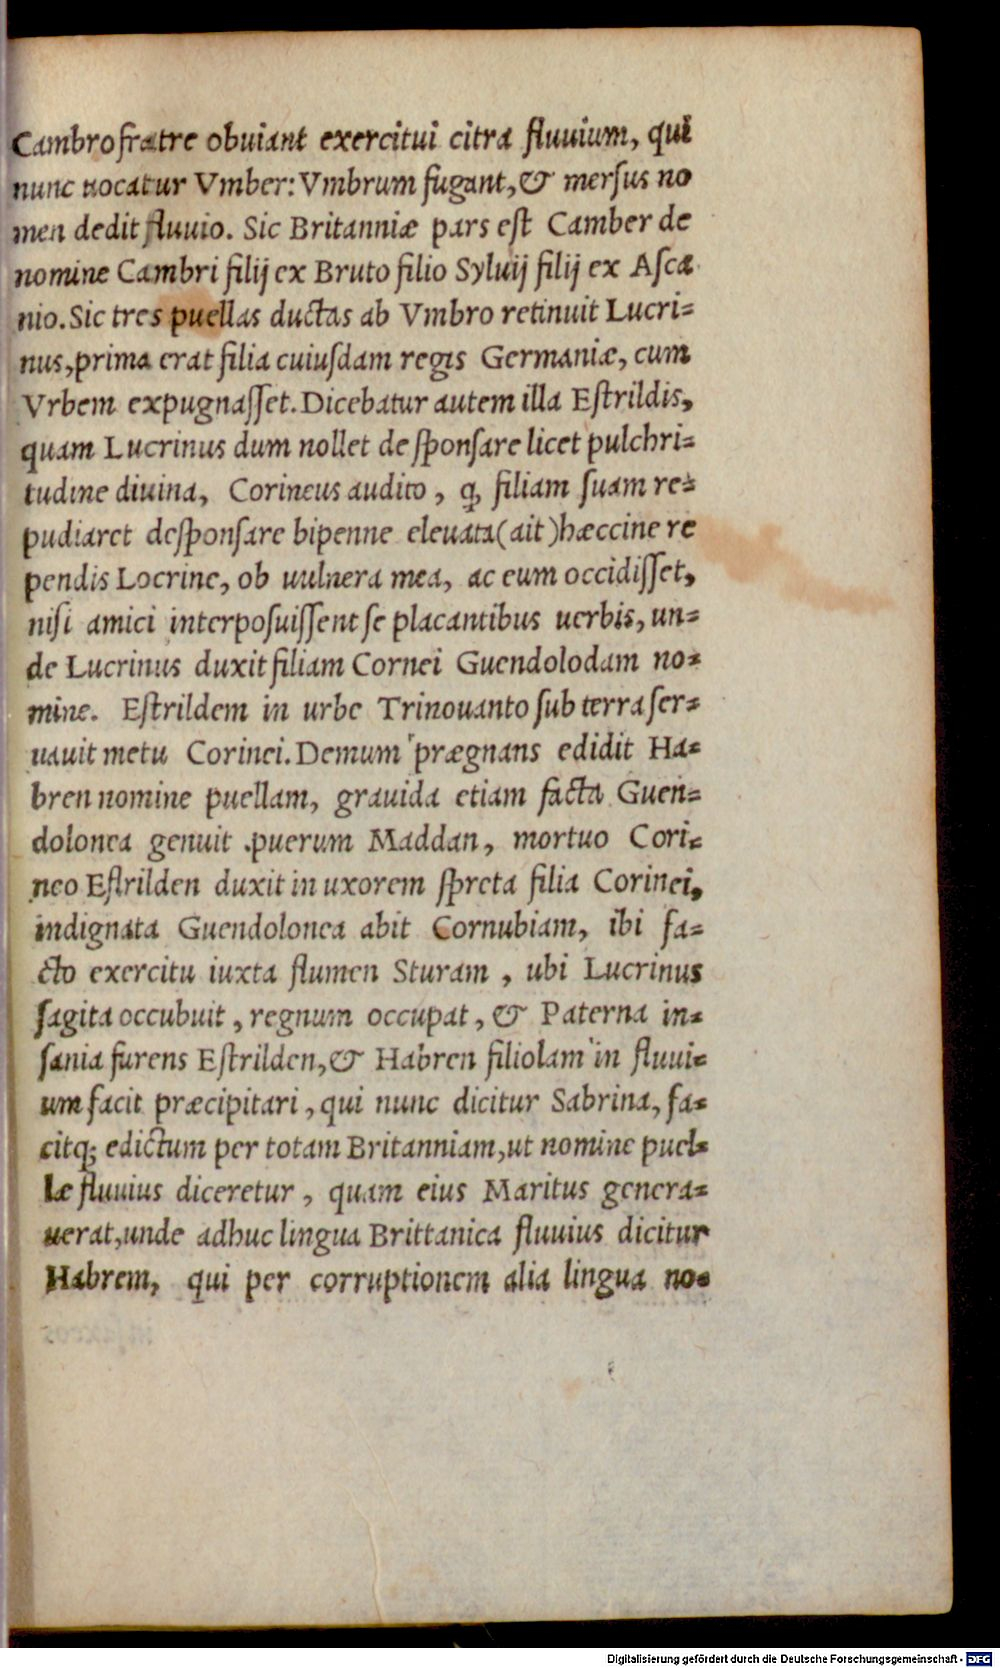 Cambro fratre obuiant exercitui citra fluuium, qui
nunc uocatur Vmber: Vmbrum fugant, & mersus no
men dedit fluuio. Sic Britanniæ pars est Camber de
nomine Cambri filij ex Bruto filio Syluij filij ex Asca
nio. Sic tres puellas ductas ab Vmbro retinuit Lucri-
nus, prima erat filia cuiusdam regis Germaniæ, cum
Vrbem expugnasset. Dicebatur autem illa Estrildis,
quam Lucrinus dum nollet desponsare licet pulchri-
tudine diuina, Corineus audito, ꝙ filiam suam re-
pudiaret desponsare bipenne eleuata (ait) hæccine re
pendis Locrine, ob uulnera mea, ac eum occidisset,
nisi amici interposuissent se placantibus uerbis, un-
de Lucrinus duxit filiam Cornei Guendolodam no-
mine. Estrildem in urbe Trinouanto sub terra ser-
uauit metu Corinei. Demum prægnans edidit Ha-
bren nomine puellam, grauida etiam facta Guen-
dolonea genuit puerum Maddan, mortuo Cori-
neo Estrilden duxit in uxorem spreta filia Corinei,
indignata Guendolonea abit Cornubiam, ibi fa-
cto exercitu iuxta flumen Sturam, ubi Lucrinus
sagita occubuit, regnum occupat, & Paterna in-
sania furens Estrilden, & Habren filiolam in fluui-
um facit præcipitari, qui nunc dicitur Sabrina, fa-
citq; edictum per totam Britanniam, ut nomine puel-
læ fluuius diceretur, quam eius Maritus genera-
uerat, unde adhuc lingua Brittanica fluuius dicitur
Habrem, qui per corruptionem alia lingua no-
Digitalisierung gefördert durch die Deutsche Forschungsgemeinschaft - DFG